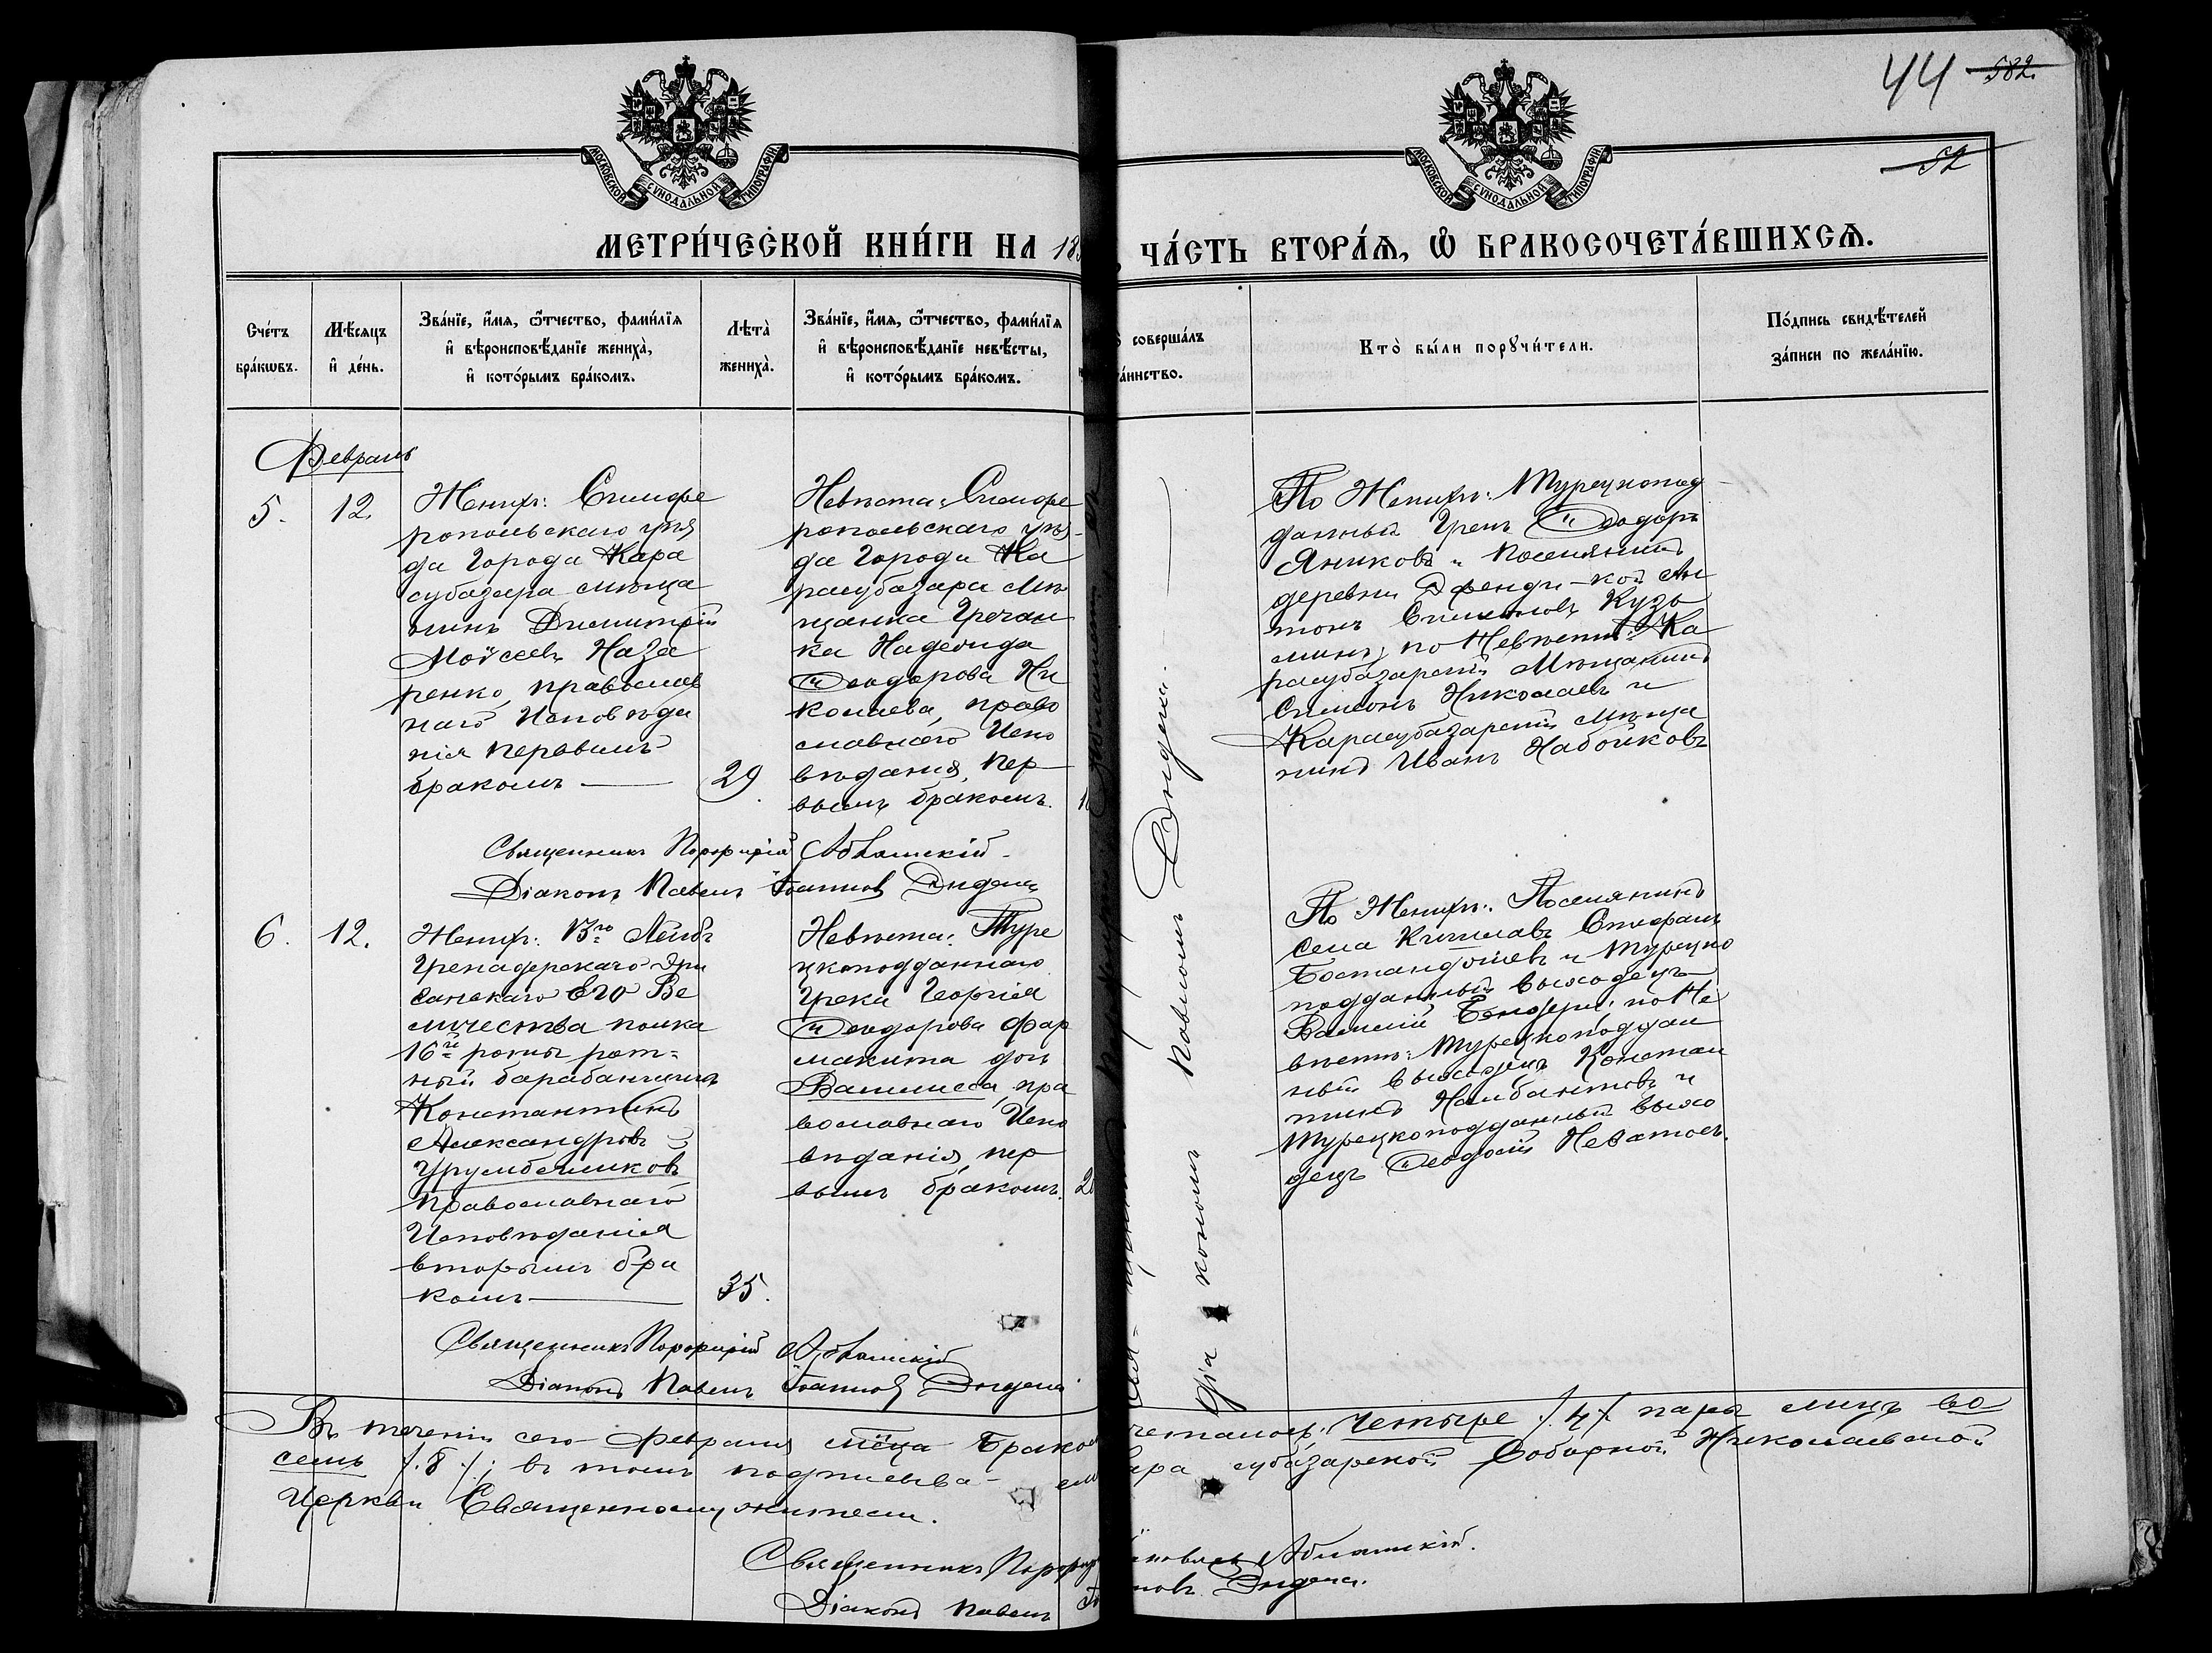 44 582.
52
МОСКОВСКОЙ СѴНОДАЛЬНОЙ ТИПОГРАФІИ
МОСКОВСКОЙ СѴНОДАЛЬНОЙ ТИПОГРАФІИ
МЕТРИ́ЧЕСКОЙ КНИ́ГИ НА 18
ЧА́СТЬ ВТОРА́Ѧ, Ѽ БРАКОСОЧЕТА́ВШИХСѦ.
Сче́тъ
бра́кωвъ.
Мѣ́сѧцъ
и҆ де́нь.
Зва́нїе, и҆́мѧ, ѻ҆́тчество, фами́лїѧ
и҆ вѣроисповѣ́данїе жениха̀,
и҆ кото́рымъ бра́комъ.
Лѣта̀
жениха̀.
Зва́нїе, и҆́мѧ, ѻ҆́тчество, фами́лїѧ
и҆ вѣроисповѣ́данїе невѣ́сты,
и҆ кото́рымъ бра́комъ.
соверша́лъ
та́инство.
Кто̀ бы́ли порꙋчи́тели.
По́дпись свидѣ́телей
за́писи по жела́нїю.
Февраль
5.
12.
Женихъ: Симфе
ропольскаго уѣз
да Города Кара
субазара мѣща
нинъ Димитрій
Моѵсеевъ Наза
ренко, православ
наго Исповѣда
нія первымъ
бракомъ
29.
Невѣста: Симфе
ропольскаго уѣз-
да Города Ка
расубазара Мѣ
щанка Гречан
ка Надежда
Ѳеодорова Ни
колаева, право
славнаго Испо
вѣданія, пер
вымъ бракомъ.
По Женихѣ: Турецкопод-
данный Грекъ Ѳеодоръ
Яниковъ и Поселянинъ
деревни Эфенди-кой Ан
тонъ Симеоновъ Кузь
минъ; по Невѣстѣ: Ка
расубазарскій Мѣщанинъ
Симеонъ Николаевъ и
Карасубазарскій мѣща
нинъ Иванъ Набойковъ
Священникъ Порфирій Абламскій.
Діаконъ Павелъ Іоанновъ
6.
12.
Женихъ: Лейбъ
Гренадерскаго Эри
ванскаго Его Ве
личества полка
16й роты рот=
ный барабанщикъ
Константинъ
Александровъ
Урумбеликовъ
Православнаго
Исповѣданія
вторымъ бра
комъ
35.
Невѣста: Туре
цкоподданнаго
Грека Георгія
Ѳеодорова Фар
макита дочь
Василиса, пра
вославнаго Испо
вѣданія, пер
вымъ бракомъ.
По Женихѣ: Поселянинъ
села Стефанъ
Бостанджіевъ и Турецко
подданный выходецъ
Василій по Не
вѣстѣ: Турецкоподдан
ный выходецъ Констан
тинъ и
Турецкоподданный выхо
децъ Ѳеодосій
Священникъ Порфирій Абламскій
Діаконъ Павелъ Іоанновъ
Павломъ
Въ теченіи сего февраля мѣсяца Брако четалось: Четыре /.4./ пары лицъ во
семь /.8./; въ томъ подписыва- субазарской Соборной Николаевской
Церкви Священнослужители.
Священникъ Порфир Абламскій.
Діаконъ Павелъ